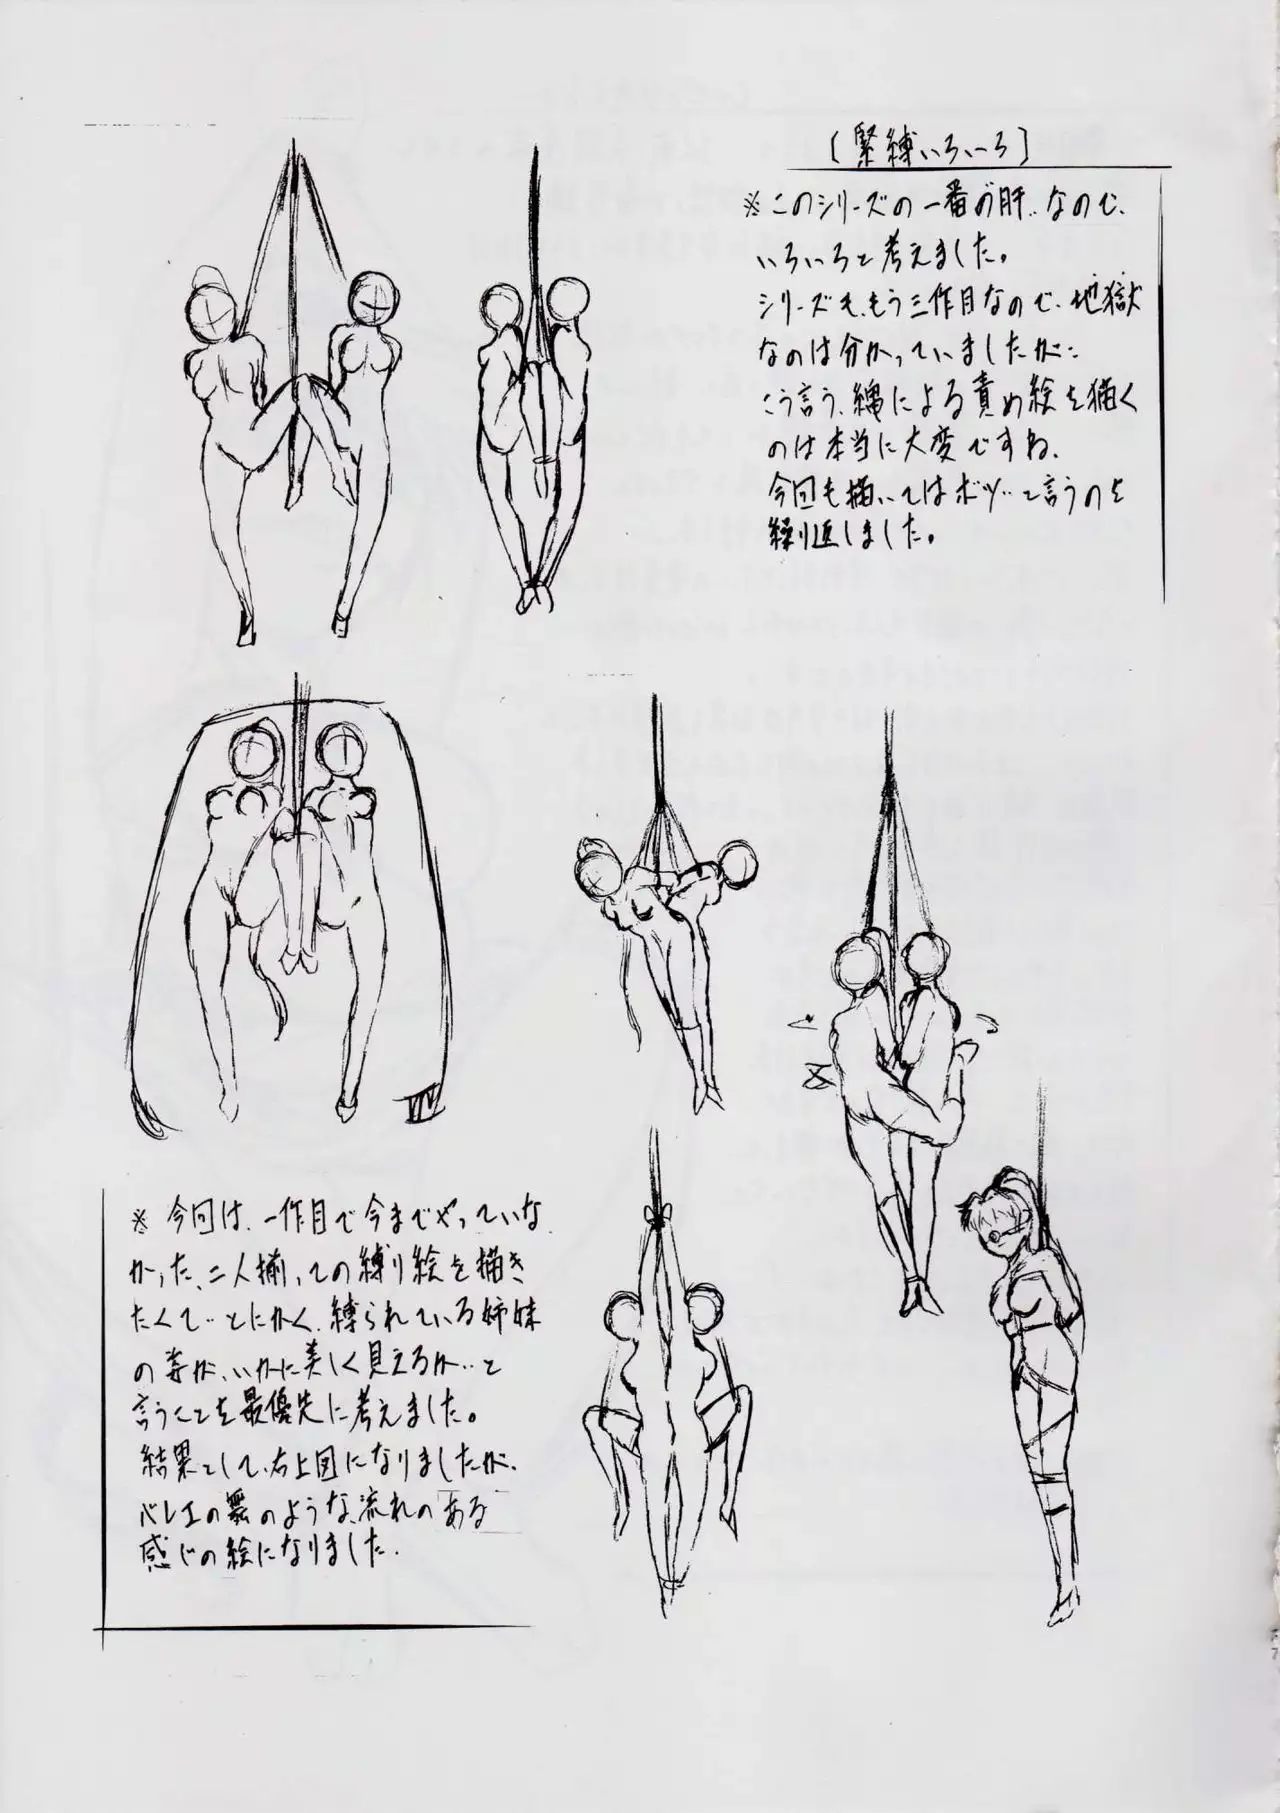 〔緊縛いろいろ〕
※このシリーズの一番の肝‥なので、
いろいろと考えました。
シリーズも、もう三作目なので、地獄
なのは分かっていましたが‥
こう言う、縄による責め絵を描く
のは本当に大変ですね、
今回も描いてはボツ‥と言うのを
繰り返しました。
※今回は、一作目で今までやっていな
かった、二人揃っての縛り絵を描き
たくて‥とにかく、縛られている姉妹
の姿が、いかに美しく見えるか‥と
言うことを最優先に考えました。
結果として、右上図になりましたが、
バレエの舞のような、流れのある
感じの絵になりました、